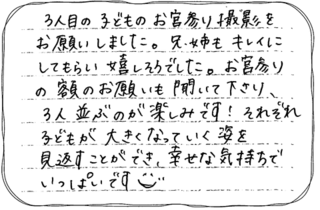 3人目の子どものお宮参り撮影を
お願いしました。兄・姉もキレイに
してもらい嬉しそうでした。お宮参り
の額のお願いも聞いて下さり、
3人並ぶのが楽しみです!それぞれ
子どもが大きくなっていく姿を
見返すことができ、幸せな気持ちで
いっぱいです